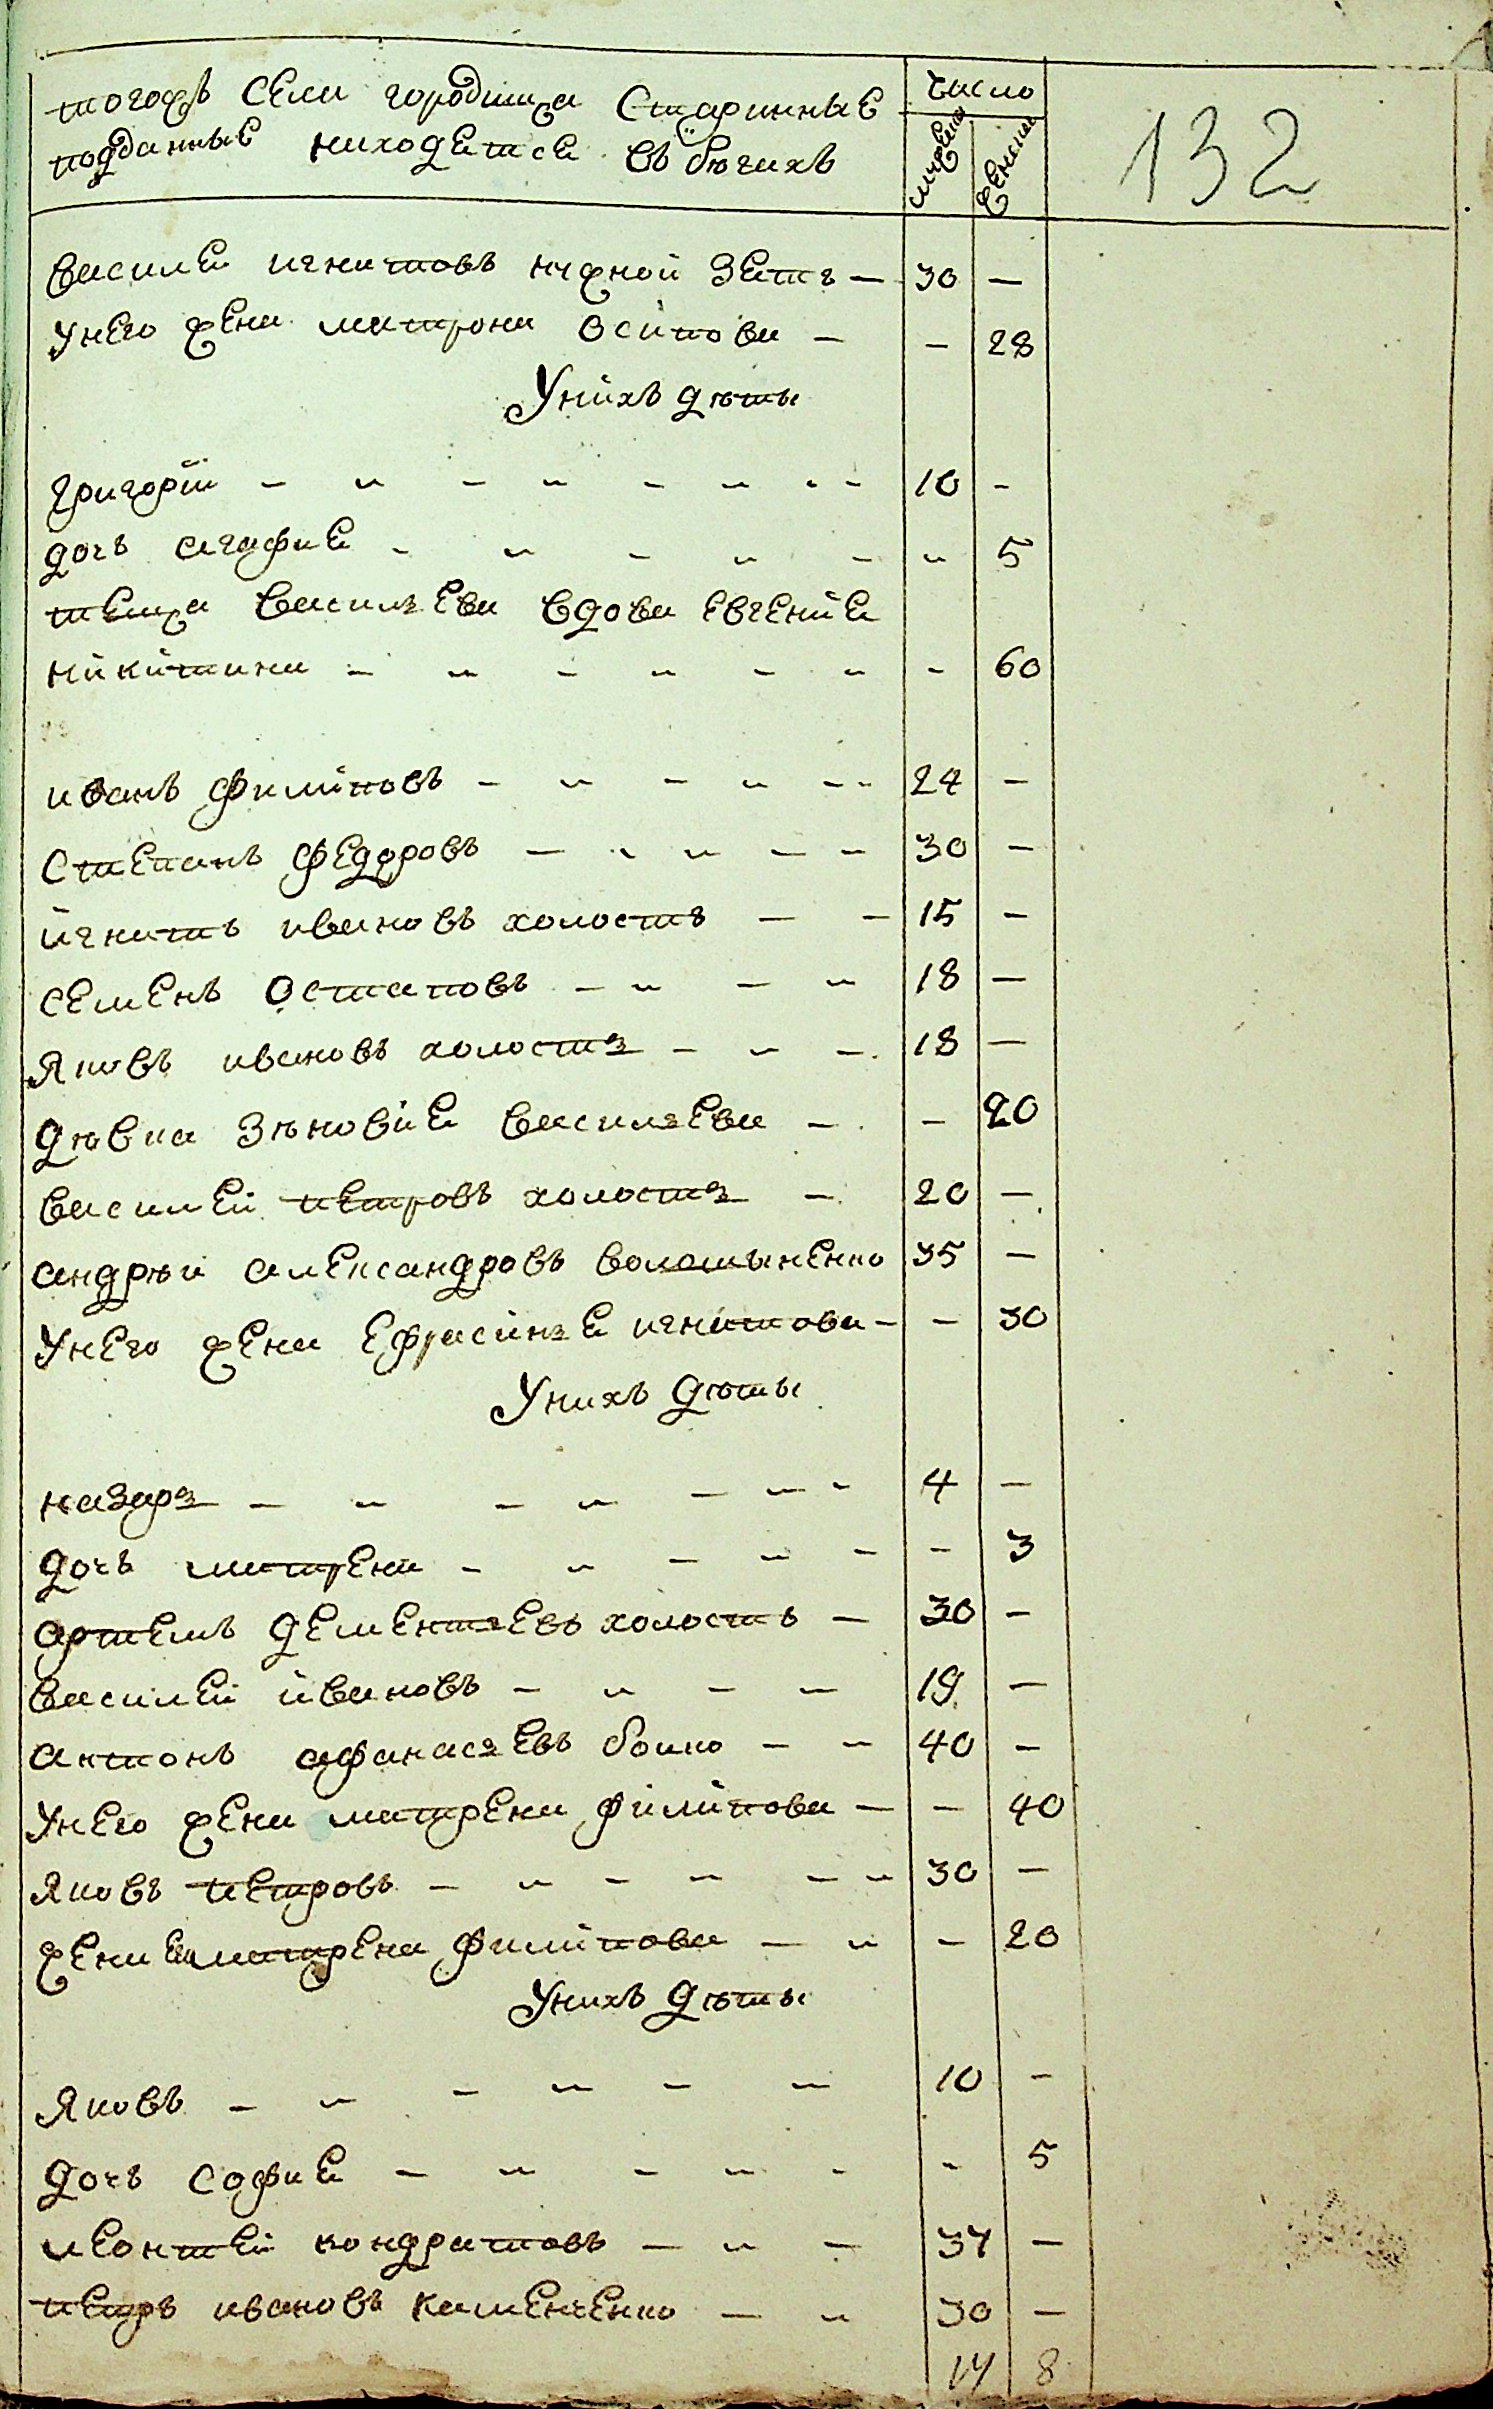 тогожъ села городища Старинные число
подданные находятся въ бегахъ мужеска женска 132
василей игнатовъ нужной зять — 30 —
унего жена матрона осипова — — 28
Унихъ дѣты
григорий 10 -
дочъ агафия 5
теща василъева вдова евгения
никитина - 60
иванъ филиповъ 24 —
степанъ федоровъ 30 —
игнатъ ивановъ холостъ — — 15 —
семенъ остаповъ 18 —
Яковъ ивановъ холостъ 18 —
дѣвка зѣновия василъева - 20
василей петровъ холостъ — 20 —
андрѣй александровъ волошыненко 35 —
унего жена ефрасинъя игнатова - — 30
Унихъ дѣты
назаръ 4 —
дочъ матрена - 3
артемъ дементъевъ холостъ — 30 —
василей ивановъ 19 —
антонъ афанасъевъ бойко 40 -
унего жена матрена филипова — — 40
Яковъ петровъ 30 —
жена ея матрена филипова - 20
Унихъ дѣты
Яковъ 10 -
дочъ софия - 5
леонтей кондратовъ 34 —
петръ ивановъ каменченко 30 —
14 8